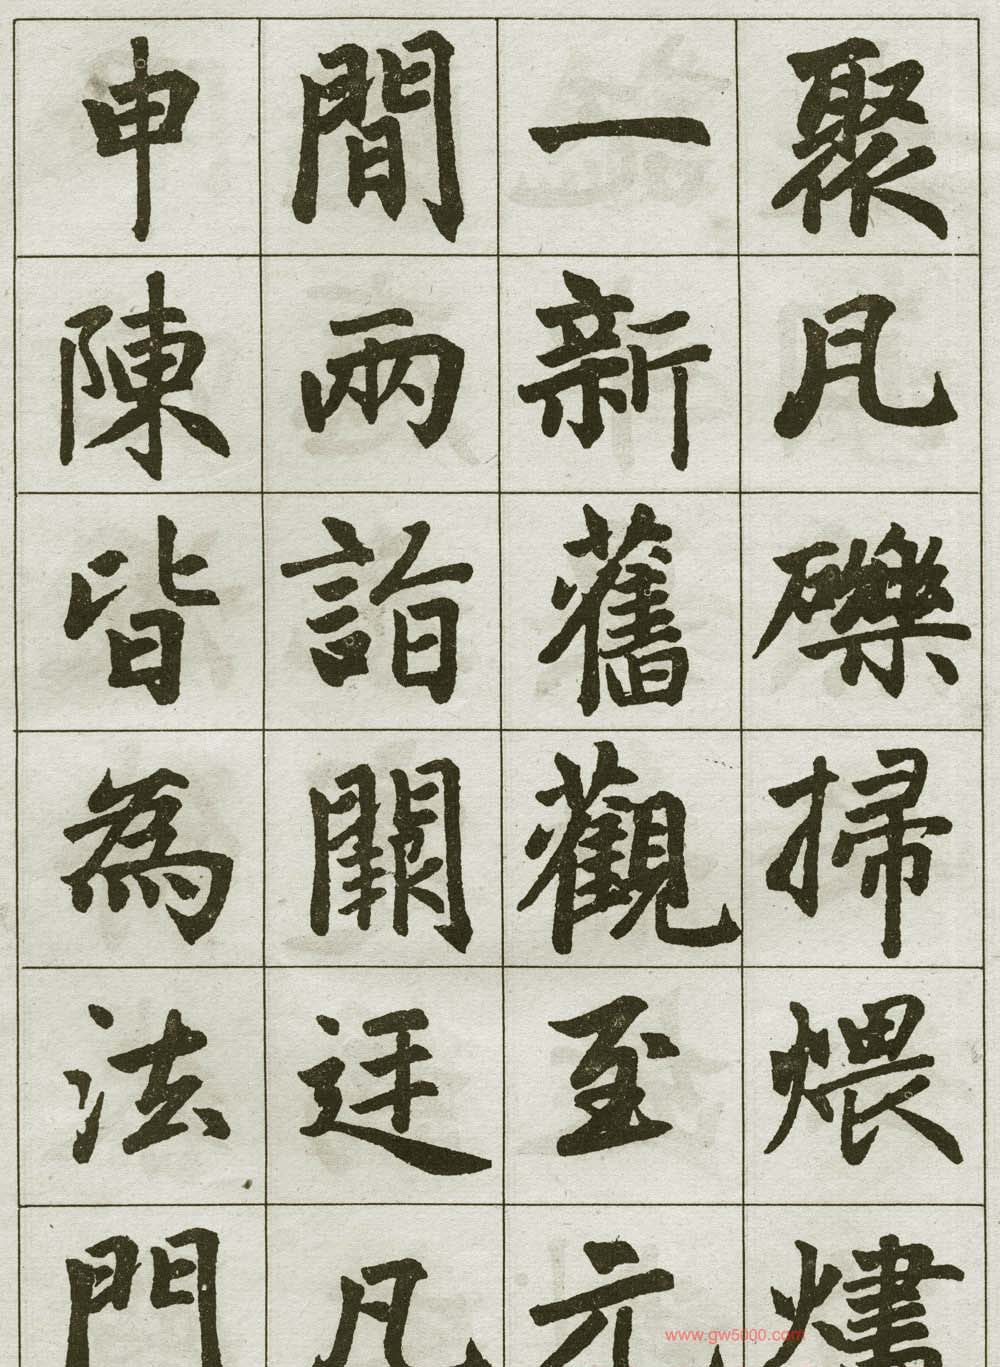 聚瓦礫掃煨燼
一新舊觀至元
間兩詣闕廷凡
申陳皆為法門
www.gw5000.com